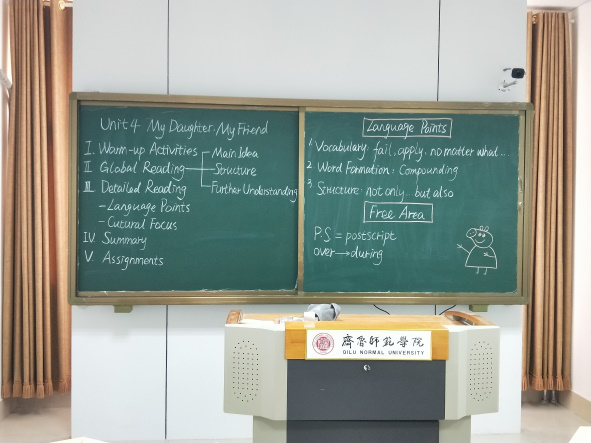 Unit 4 My Daughter, My Friend
I. Warm-up Activities
II. Global Reading
Main Idea
Structure
Further Understanding
III. Detailed Reading
-Language Points
-Cutural Focus
IV. Summary
V. Assignments
Language Points
1. Vocabulary: fail, apply, no matter what...
2. Word Formation: Compounding
3. Structure: not only...but also
Free Area
P.S = postscript
over→during
齊魯師範學院
QILU NORMAL UNIVERSITY